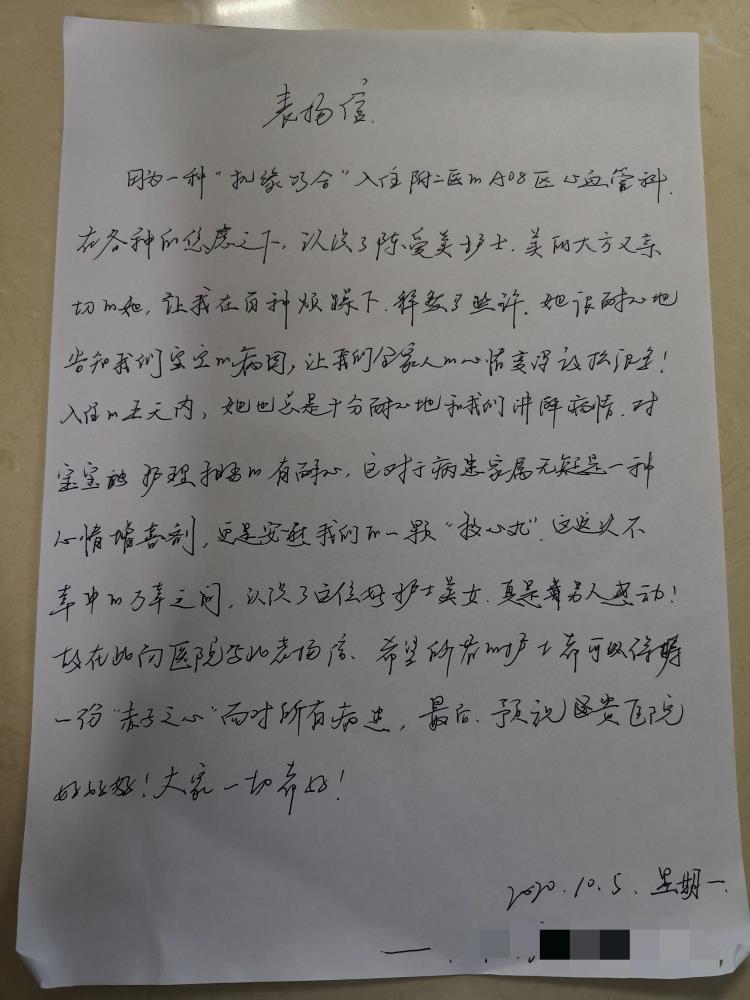 表扬信.
因为一种"机缘巧合"入住附二医的A08区心血管科.
在各种的焦虑之下,认识了陈爱美护士.美丽大方又亲
切的她,让我在百种烦躁下.释放了些许.她很耐心地
告知我们宝宝的病因,让我们全家人的心情变得放松很多!
入住的五天内,她也总是十分耐心地和我们讲解病情.对
宝宝的护理相当的有耐心,这对于病患家属无疑是一种
心情增喜剂,更是安慰我们的一颗"救心丸".这这次不
幸中的万幸之间,认识了这位好护士美女.真是尤为人感动!
故在此向医院写此表扬信、希望所有的护士都可以保持
一份"赤子之心"面对所有病患,最后、预祝贵医院
好好好!大家一切都好!
2020.10.5.星期一.